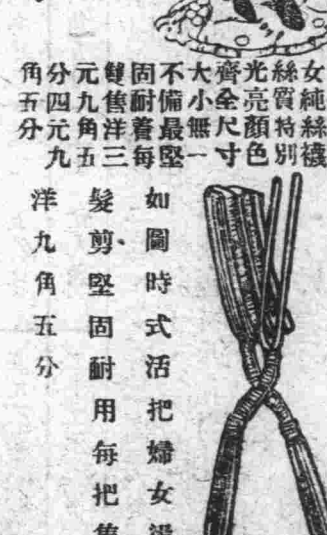 女純絲襪
絲質特別
光亮顏色
齊全尺寸
大小無一
不備最堅
固耐著每
雙售洋三
元九角五
分四元九
角五分
如圖時式活把婦女燙
髮剪、堅固耐用每把售
洋九角五分